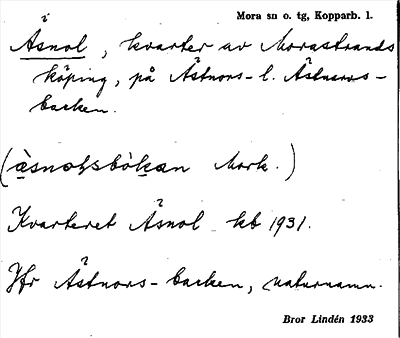 Mora sn o. tg, Kopparb. l.
Åsnol, kvarter av Morastrands
köping, på Åstnors- l. Åstnurs-
backen.
(àsnoɫsbòkan Mork.)
Kvarteret Åsnol kb 1931.
Jfr Åstnors-backen, naturnamn.
Bror Lindén 1933